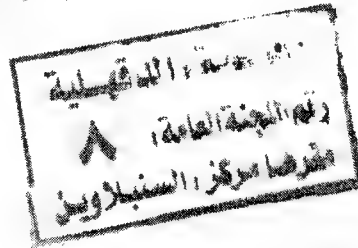 الدقهلية
رقم اللجنة العامة،
٨
مقرها مركز، السنبلاوين